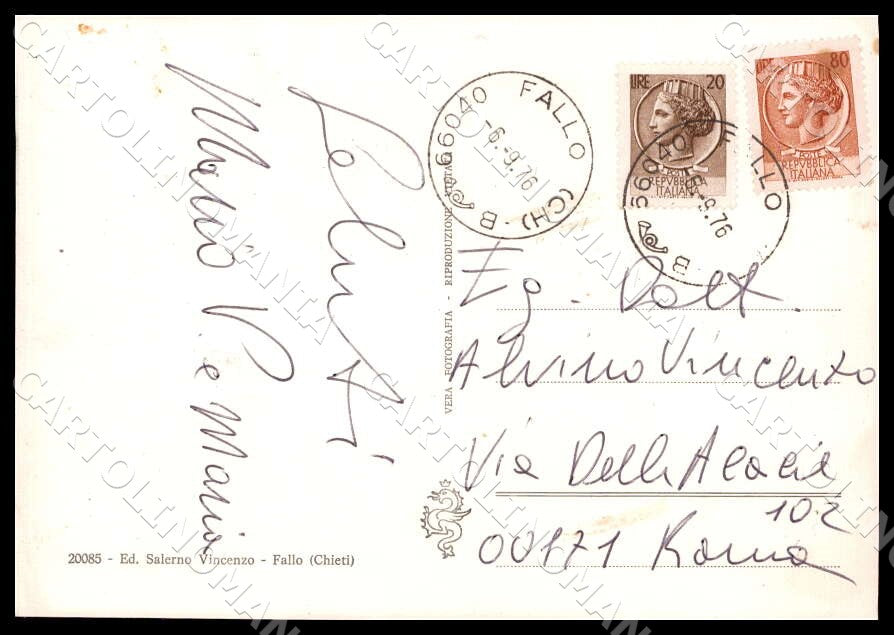 Saluti
Mario V. e Maria
20085 - Ed. Salerno Vincenzo - Fallo (Chieti)
VERA FOTOGRAFIA - RIPRODUZIONE VIETATA
66040 FALLO (CH) - B
-6.-9.76
66040 FALLO
-6.-9.76
B
LIRE 20
POSTE
REPVBBLICA
ITALIANA
LIRE 80
POSTE
REPVBBLICA
ITALIANA
Eg. Dott.
Alvino Vincenzo
Via Delle Acacie
102
00171 Roma
CARTOLINOMANIA